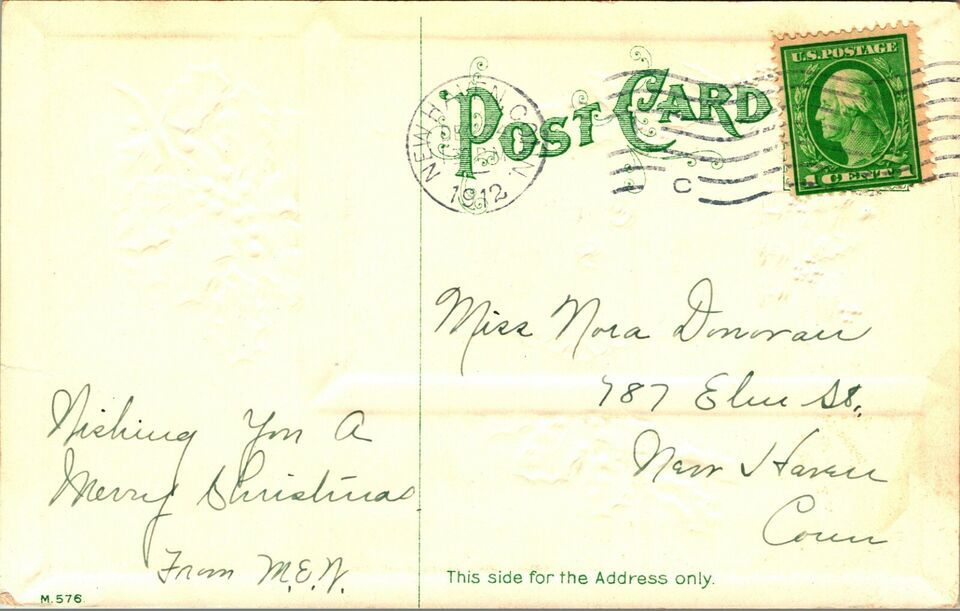 POST CARD
U.S. POSTAGE
1 CENT 1
NEW HAVEN CONN
1912
C
Miss Nora Donovan
787 Elm St.,
New Haven
Conn
Wishing You A
Merry Christmas
From M.E.N.
This side for the Address only.
M.576